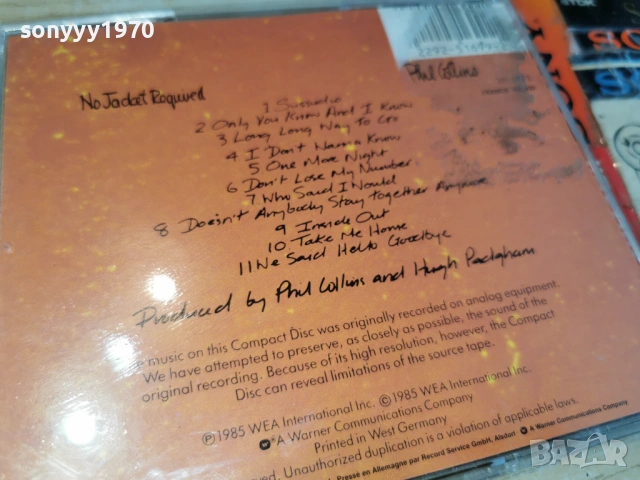 sonyyy1970
No Jacket Required
Phil Collins
1 Sussudio
2 Only You Know And I Know
3 Long Long Way To Go
4 I Don't Wanna Know
5 One More Night
6 Don't Lose My Number
7 Who Said I Would
8 Doesn't Anybody Stay Together Anymore
9 Inside Out
10 Take Me Home
11 We Said Hello Goodbye
Produced by Phil Collins and Hugh Padgham
music on this Compact Disc was originally recorded on analog equipment.
We have attempted to preserve, as closely as possible, the sound of the
original recording. Because of its high resolution, however, the Compact
Disc can reveal limitations of the source tape.
℗1985 WEA International Inc. ©1985 WEA International Inc.
A Warner Communications Company
Printed in West Germany
Unauthorized duplication is a violation of applicable laws.
A Warner Communications Company
Pressé en Allemagne par Record Service GmbH, Alsdorf
BAZAR